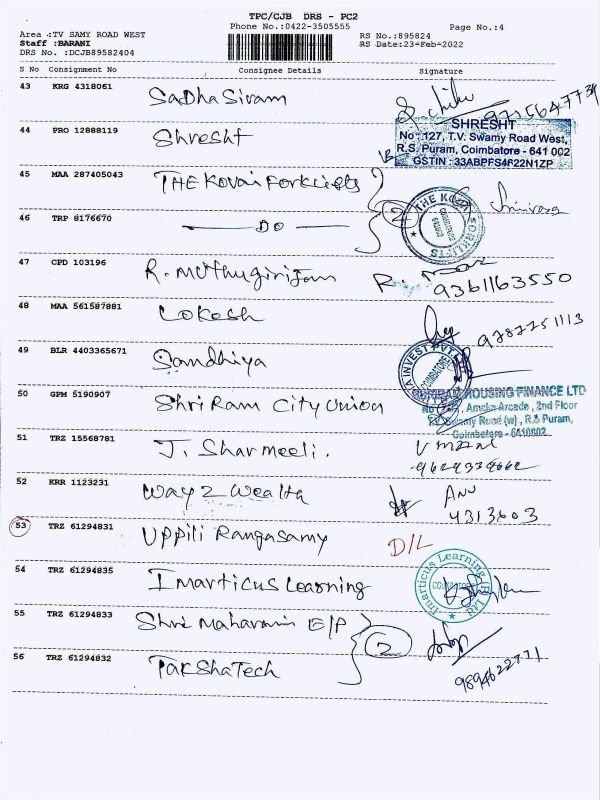 TPC/CJB DRS - PC2
Phone No.:0422-3505555
Page No.:4
Area :TV SAMY ROAD WEST
Staff :BARANI
DRS No. :DCJB89582404
RS No.:895824
RS Date:23-Feb-2022
S No Consignment No Consignee Details Signature
43 KRG 4318061 Sadha Sivam
44 PRO 12888119 Shresht
SHRESHT
No : 127, T.V. Swamy Road West,
R.S. Puram, Coimbatore - 641 002
GSTIN : 33ABPFS4F22N1ZP
45 MAA 287405043 THE Kovai Forklifts
46 TRP 8176670 DO 2
THE KOVAI FORKLIFTS
COIMBATORE
641002
47 CPD 103196 R. Muthugirijam R.
9361163550
48 MAA 561587881 Lokesh
9787251113
49 BLR 4403365671 Sandhiya
INVEST PVT
COIMBATORE
50 GPM 5190907 Shri Ram City Union
HOUSING FINANCE LTD
Arcade , 2nd Floor
Swamy Road (w) , R.S Puram,
Coimbatore - 641002
51 TRZ 15568781 J. Sharmeeli.
52 KRR 1123231 Way 2 Wealth
Anu
4313603
53 TRZ 61294831 Uppili Rangasamy D/L
54 TRZ 61294835 Imarticus Learning
Imarticus Learning Pvt Ltd
COIMBATORE
55 TRZ 61294833 Shri Maharani E/P
2
56 TRZ 61294832 TakshaTech